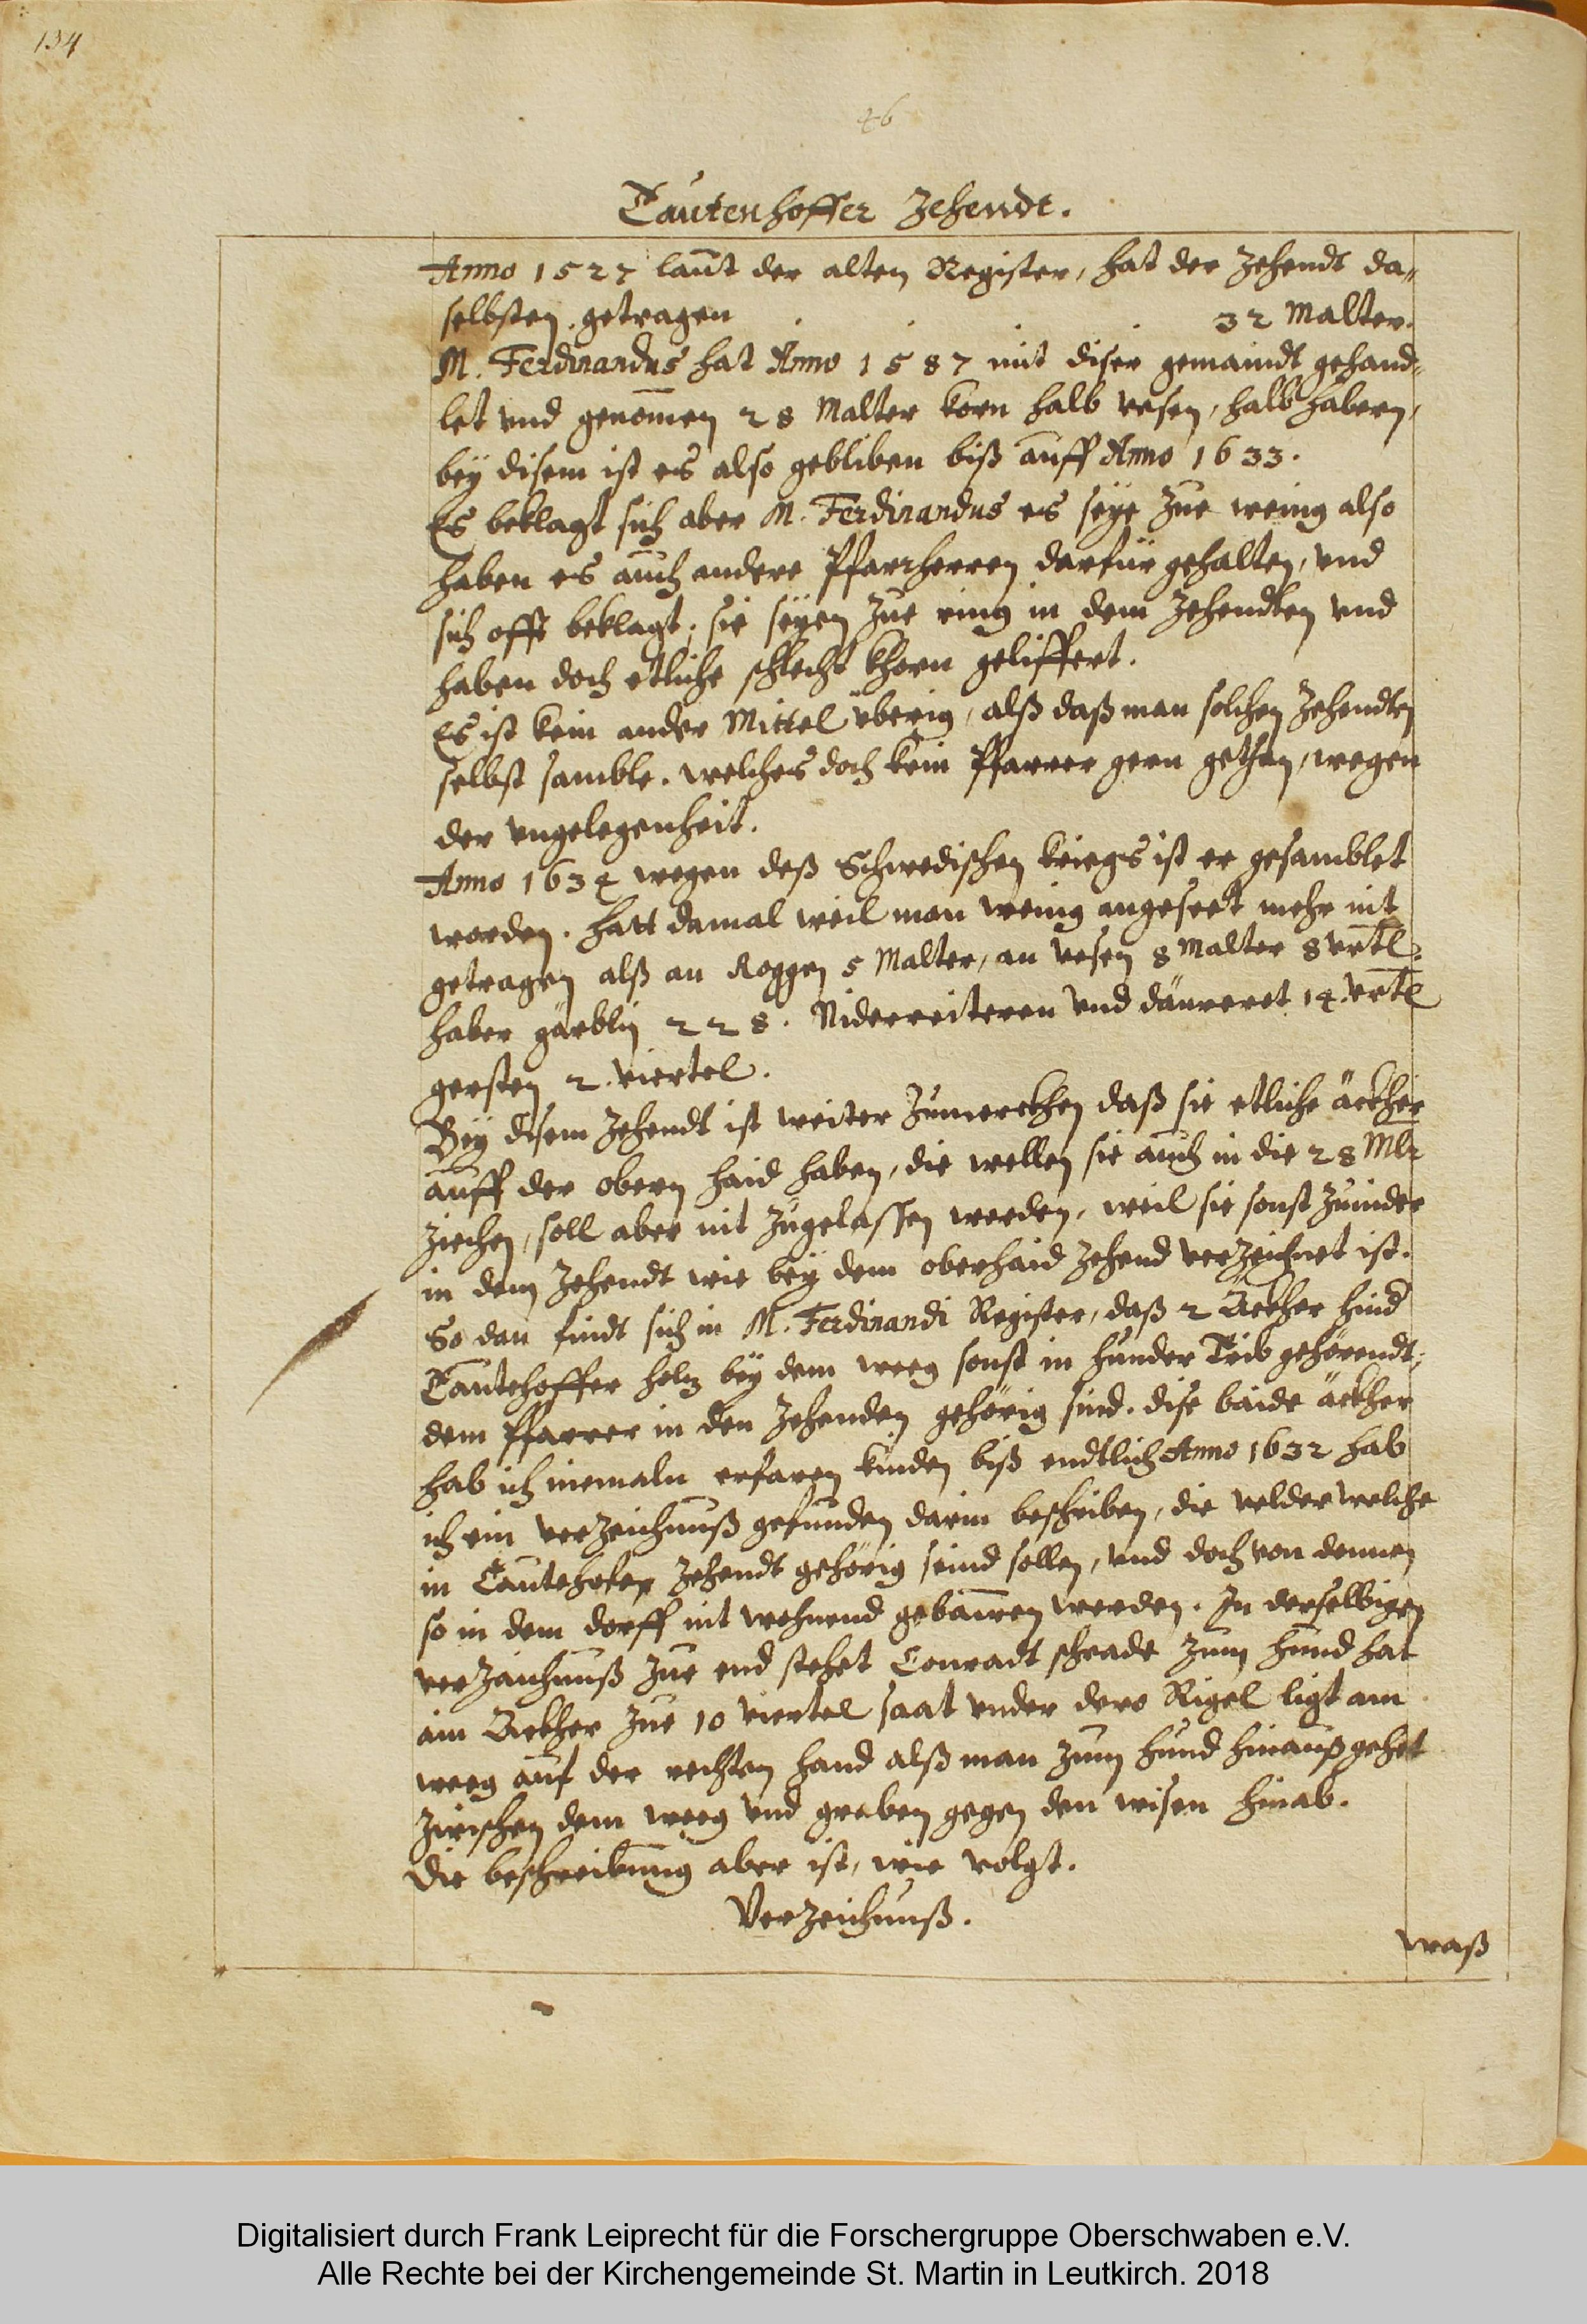 134
46
Tautenhoffer Zehendt.
Anno 1527 lautt der alten Register, hat der Zehendt da„
selbsten getragen 32 Malter.
M. Ferdinandus hat Anno 1587 mit diser gemaindt gehand„
let vnd genom̄en 28 Malter korn halb vesen, halb habern,
bey disem ist es also gebliben biß auff Anno 1633.
Es beklagt sich aber M. Ferdinandus es seye zue wenig also
haben es auch andere Pfarrherren darfür gehalten, vnd
sich offt beklagt, sie seyen zue ring in dem Zehendten vnd
haben doch etliche schlecht khorn geliffert.
Es ist kein ander Mittel überig, alß daß man solchen Zehendten
selbst samble. welches doch kein Pfarrer gern gethan, wegen
der vngelegenheit.
Anno 1634 wegen deß Schwedischen kriegs ist er gesamblet
worden. hatt damal weil man wenig angeseet mehr nit
getragen alß an Roggen 5 Malter, an vesen 8 Malter 8 vrtl.
haber gärblin 228. Niderreiteren vnd däureret 14. vrtl
gersten 2. viertel.
Bey disem Zehendt ist weiter zumerckhen daß sie etliche äckher
auff der obern haid haben, die wellen sie auch in die 28 Mlr
ziechen, soll aber nit zugelassen werden, weil sie sonst
in dem Zehendt wie bey dem oberhaid Zehend verzeichnet ist.
So dan findt sich in M. Ferdinandi Register, daß 2 Äckher hind
Tautehoffer holz bey dem weeg sonst in hunder Trib gehörendt,
dem Pfarrer in den Zehenden gehörig sind. dise baide äckher
hab ich niemaln erfaren kinden biß endtlich Anno 1632 hab
ich ein verzeichnuß gefunden darin beschriben, die velder welche
in Tautehofer Zehendt gehörig seind sollen, vnd doch von dennen
so in dem dorff nit wohnend gebauwen werden. In derselbigen
verzaichnuß zue end stehet Conradt schrade zum hund hat
ain Äckher zue 10 viertel saat vnder dero Rigel ligt am
weeg auf der rechten hand alß man zum hund hinauß gehet
zwischen dem weeg vnd graben gegen den wisen hinab.
Die beschreibung aber ist, wie volgt.
Verzeichnuß.
waß
Digitalisiert durch Frank Leiprecht für die Forschergruppe Oberschwaben e.V.
Alle Rechte bei der Kirchengemeinde St. Martin in Leutkirch. 2018